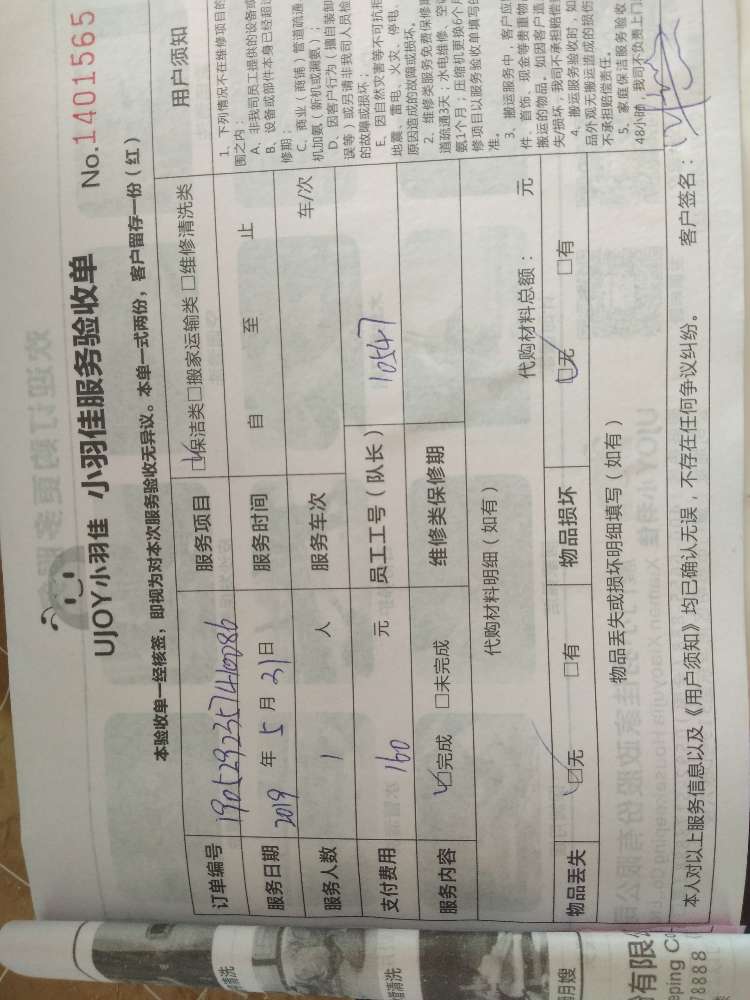 UJOY小羽佳 小羽佳服务验收单 No.1401565
本验收单一经核签，即视为对本次服务验收无异议。本单一式两份，客户留存一份（红）
订单编号 服务项目 ☑保洁类□搬家运输类 □维修清洗类
服务日期 2019 年 5 月 21 日 服务时间 自 至 止
服务人数 1 人 服务车次 车/次
支付费用 160 元 员工工号（队长） 10547
服务内容 ☑完成 □未完成 维修类保修期
代购材料明细（如有） 代购材料总额： 元
物品丢失 ☑无 □有 物品损坏 ☑无 □有
物品丢失或损坏明细填写（如有）
本人对以上服务信息以及《用户须知》均已确认无误，不存在任何争议纠纷。 客户签名：
用户须知
1、下列情况不在维修项目的
围之内：
A、非我司员工提供的设备或
B、设备或部件本身已经超过
修期；
C、商业（商铺）管道疏通
机加氨（新机或漏氨）；
D、因客户行为（擅自装卸
误等）或另请非我司人员检
的故障或损坏；
E、因自然灾害等不可抗拒
地震、雷电、火灾、停电、
原因造成的故障或损坏。
2、维修类服务免费保修期
道疏通3天；水电维修、空调
氨1个月；压缩机更换6个月
修项目以服务验收单填写的
准。
3、搬运服务中，客户应
件、首饰、现金等贵重物
搬运的物品。如因客户造
失/损坏，我司不承担赔偿
4、搬运服务验收时，如
品外观无搬运造成的损伤
不承担赔偿责任。
5、家庭保洁服务验收
48小时，我司不负责上门
清洗
清洗
月嫂
有限
ping Co
8888